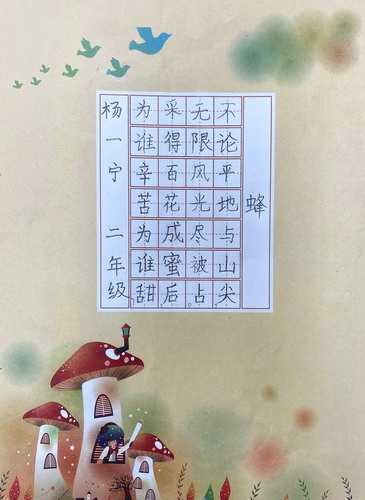 蜂
不论平地与山尖
无限风光尽被占
采得百花成蜜后
为谁辛苦为谁甜
杨一宁 二年级